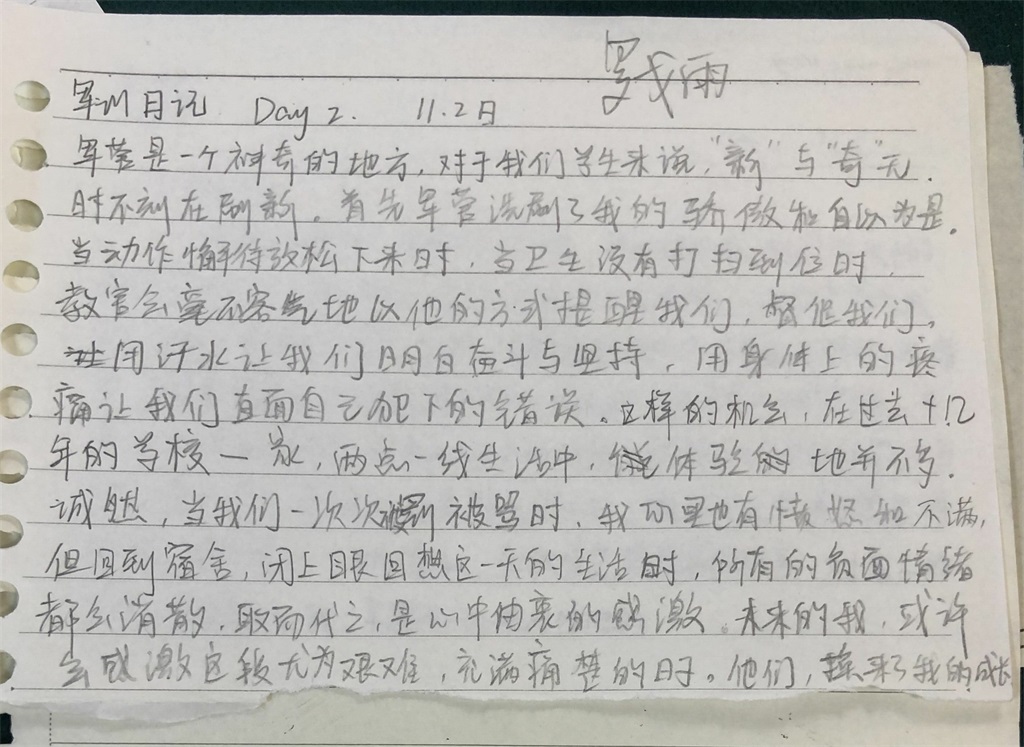 罗戈雨
军训日记 Day 2. 11.2日
军营是一个神奇的地方，对于我们学生来说，"新"与"奇"无
时不刻在刷新。首先军营洗刷了我的骄傲和自以为是。
当动作懈待放松下来时，当卫生没有打扫到位时，
教官会毫不客气地以他的方式提醒我们，督促我们。
用汗水让我们明白奋斗与坚持，用身体上的疼
痛让我们直面自己犯下的错误。这样的机会，在过去十12
年的学校—家，两点一线生活中，体验地并不多。
诚然，当我们一次次被骂时，我心里也有愤怒和不满，
但回到宿舍，闭上眼回想这一天的生活时，所有的负面情绪
都会消散，取而代之，是心中由衷的感激。未来的我，或许
会感激这段尤为艰难，充满痛楚的日子。他们，换来了我的成长